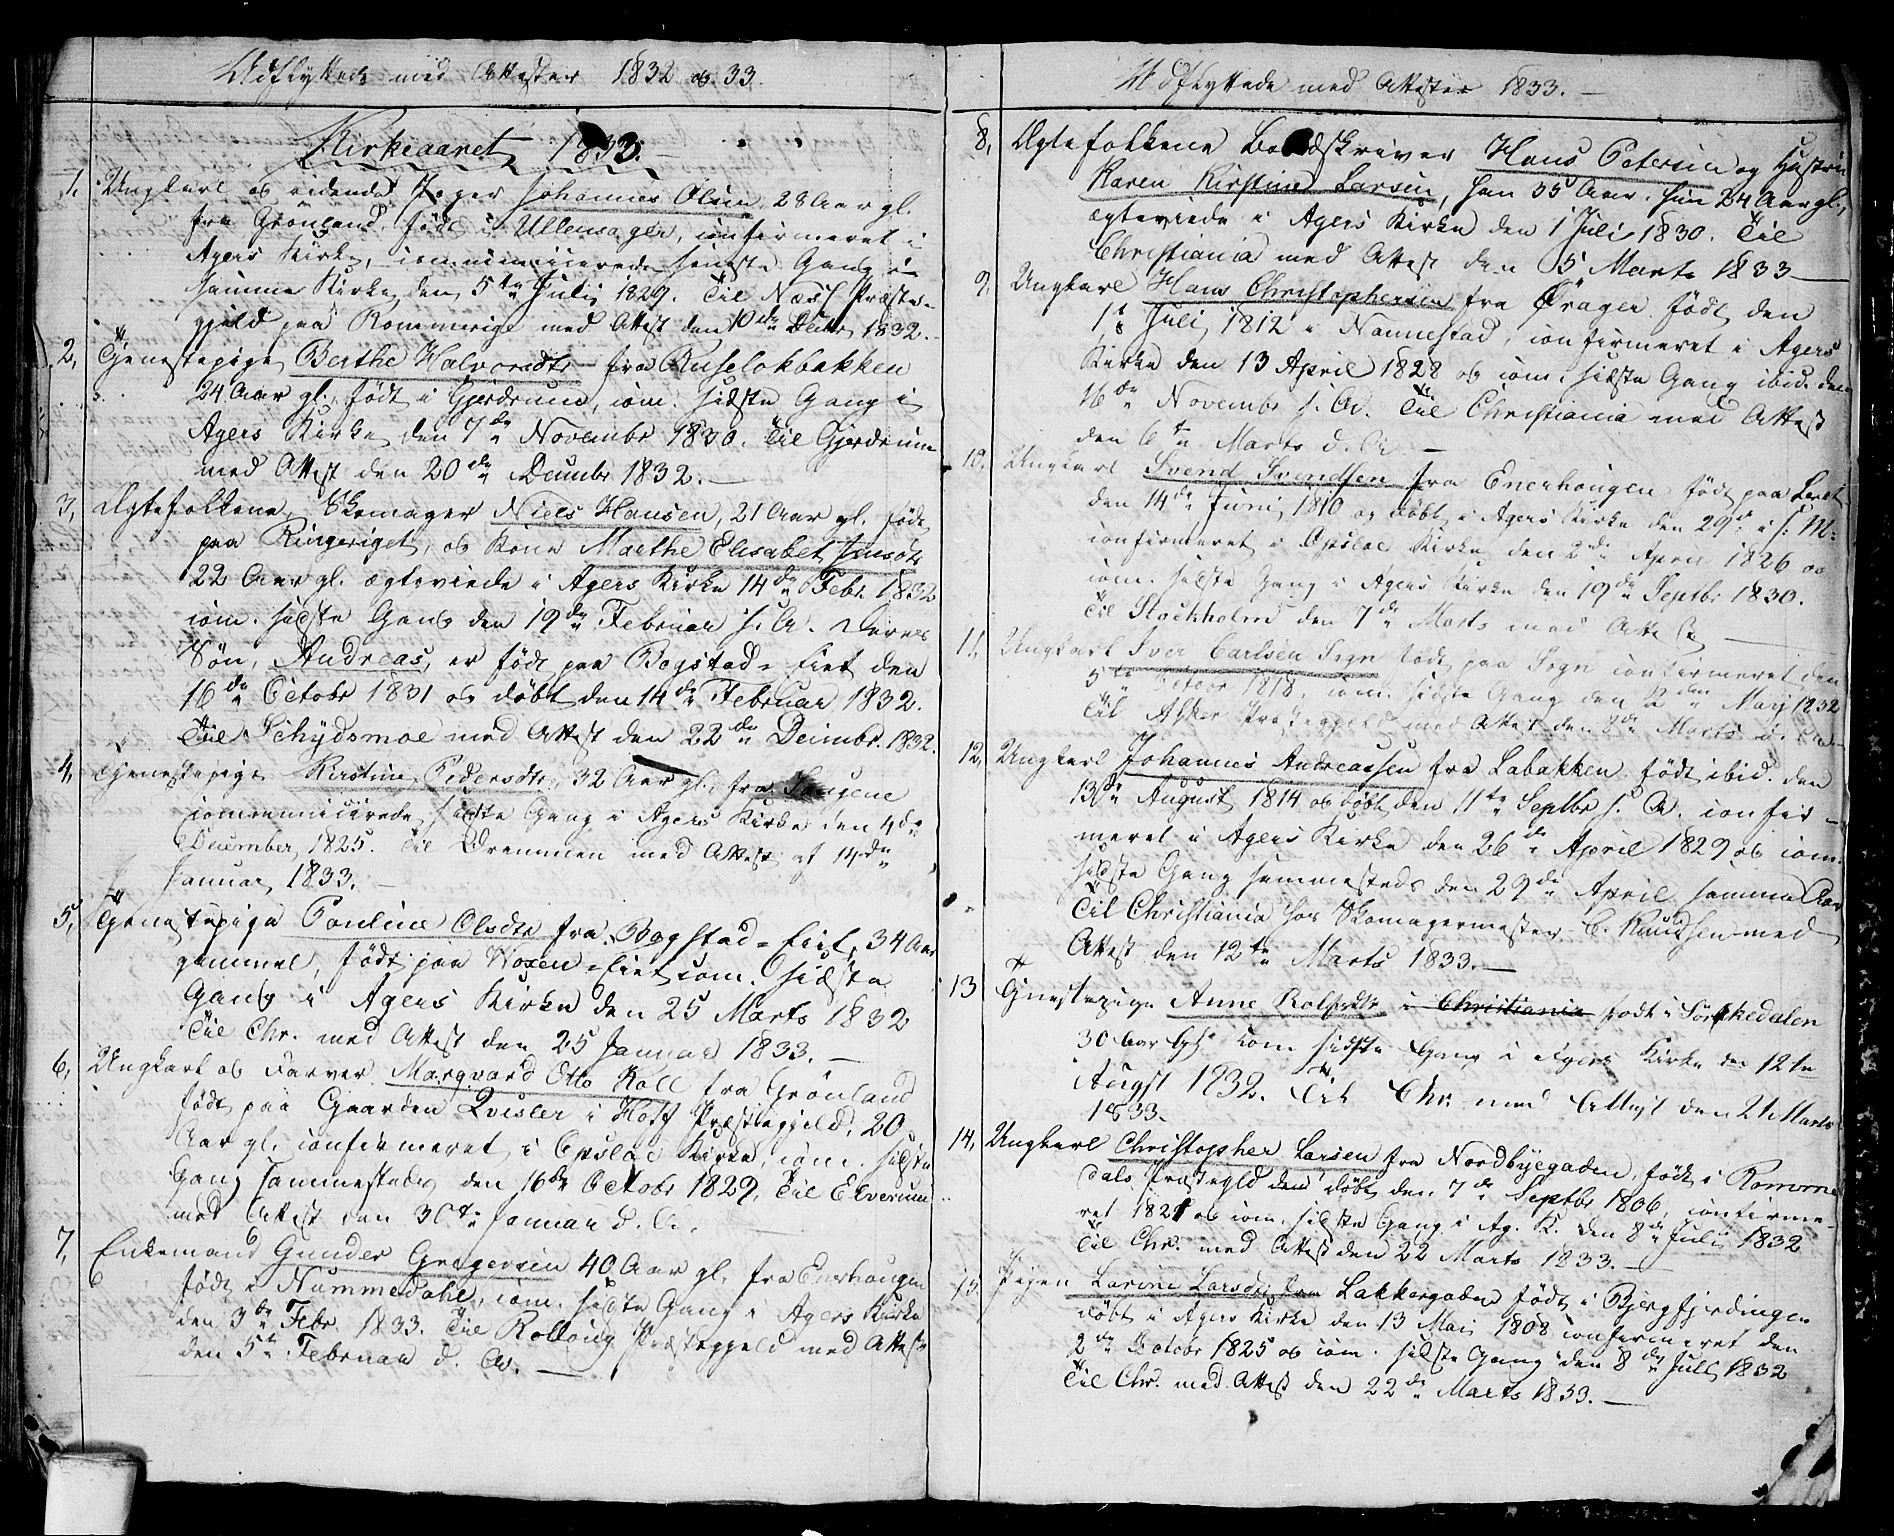 Udflyttede med Attester 1832 og 33.
Kirkeaaret 1833.
1. Ungkarl og ridende Jæger Johannes Olsen 28 Aar gl.
fra Grønland, født i Ullensager, confirmeret i
Agers Kirke, communicerede seneste Gang i
samme Kirke den 5te Julij 1829. Til Næss Præste-
gjeld paa Rommerige med Attest den 10de Decbr. 1832.
2, Tjenestepige Berthe Halvorsdtr fra Ruseløkbakken
24 Aar gl., født i Gjerdrum, com. sidste Gang i
Agers Kirke den 7de Novembr 1830. Til Gjerdrum
med Attest den 20de Decembr 1832.
3, Ægtefolkene, Skomager Niels Hansen, 21 Aar gl. født
paa Ringeriget, og Kone Marthe Elisabet Jensdtr
22 Aar gl. ægteviede i Agers Kirke 14de Febr. 1832
com. sidste Gang den 19de Februar s. A. Deres
Søn, Andreas, er født paa Bogstad-Eiet den
16de Octobr 1831 og døbt den 14de Februar 1832.
Til Schydsmoe med Attest den 22de Decembr. 1832.
4, Tjenestepige Kirstine Pedersdtr, 32 Aar gl., fra Saugene
communicerede sidste Gang i Agers Kirke den 4de
December 1825. Til Drammen med Attest af 14de
Januar 1833.
5, Tjenestepige Pauline Olsdtr fra Bogstad-Eiet, 34 Aar
gammel, født paa Woxen-Eiet com. sidste
Gang i Agers Kirke den 25 Marts 1832
Til Chr. med Attest den 25 Januar 1833.
6, Ungkarl og Farver Marqvard Otto Roll fra Grønland
født paa Gaarden Qvisler i Hoff Præstegjeld, 20
Aar gl. confirmeret i Opsloe Kirke, com. sidste
Gang sammesteds den 16de Octobr 1829, Til Elverum
med Attest den 30te Januar d. A.
7, Enkemand Gunder Gregersen 40 Aar gl. fra Enerhougen
født i Nummedahl, com. sidste Gang i Agers Kirke
den 3de Febr 1833. Til Rolloug Præstegjeld med Attest
den 5te Februar d. A.
Udflyttede med Attester 1833.
8, Ægtefolkene Hans Petersen og Hustru
Karen Kirstine Larsen, han 35 Aar. hun 24 Aar gl.,
ægteviede i Agers Kirke den 1 Juli 1830. Til
Christiania med Attest den 5 Marts 1833
9, Ungkarl Hans Christophersen fra Øragen født den
1 Juli 1812 i Nannestad, confirmeret i Agers
Kirke den 13 April 1828 og com. sidste Gang ibid. den
16de Novembr s. A. Til Christiania med Attest
den 6te Marts d. A.
10, Ungkarl Svend Svendsen fra Enerhougen født paa Leret
den 14de Juni 1810 og døbt i Agers Kirke den 29de i s. M.
confirmeret i Opsloe Kirke den 2den April 1826 og
com. sidste Gang i Agers Kirke den 19de Septbr 1830.
Til Stockholm den 7de Marts med Attest
11, Ungkarl Iver Carlsen Sogn født paa Sogn confirmeret den
5te Octobr 1818, com. sidste Gang den 2den Maij 1832
Til Asker Præstegjeld med Attest den 8de Marts d. A.
12, Ungkarl Johannes Andreassen fra Labakken, født ibid. den
13de August 1814 og døbt den 11te Septbr s. A. confir-
meret i Agers Kirke den 26de April 1829 og com.
sidste Gang sammesteds den 29de April samme Aar
Til Christiania hos Skomagermester C. Knudsen med
Attest den 12te Marts 1833.
13 Tjenestepige Anne Rolfsdtr i Christiania født i Sørkedalen
30 Aar gl. com sidste Gang i Agers Kirke den 12te
Augst 1832. Til Chr. med Attest den 21 Marts
1833.
14, Ungkarl Christopher Larsen fra Nordbyegaden, født i Romme-
dals Præstegld den døbt den 7de Septbr 1806, confirme-
ret 1821 og com. sidste Gang i Ag. K. den 8de Julij 1832
Til Chr. med Attest den 22 Marts 1833.
15, Pigen Larine Larsdtr fra Lakkergaden født i Bjergfjerdingen
døbt i Agers Kirke den 13 Maij 1808 confirmeret den
2de Octobr 1825 og com. sidste Gang den 8de Juli 1832
Til Chr. med Attest den 22de Marts 1833.